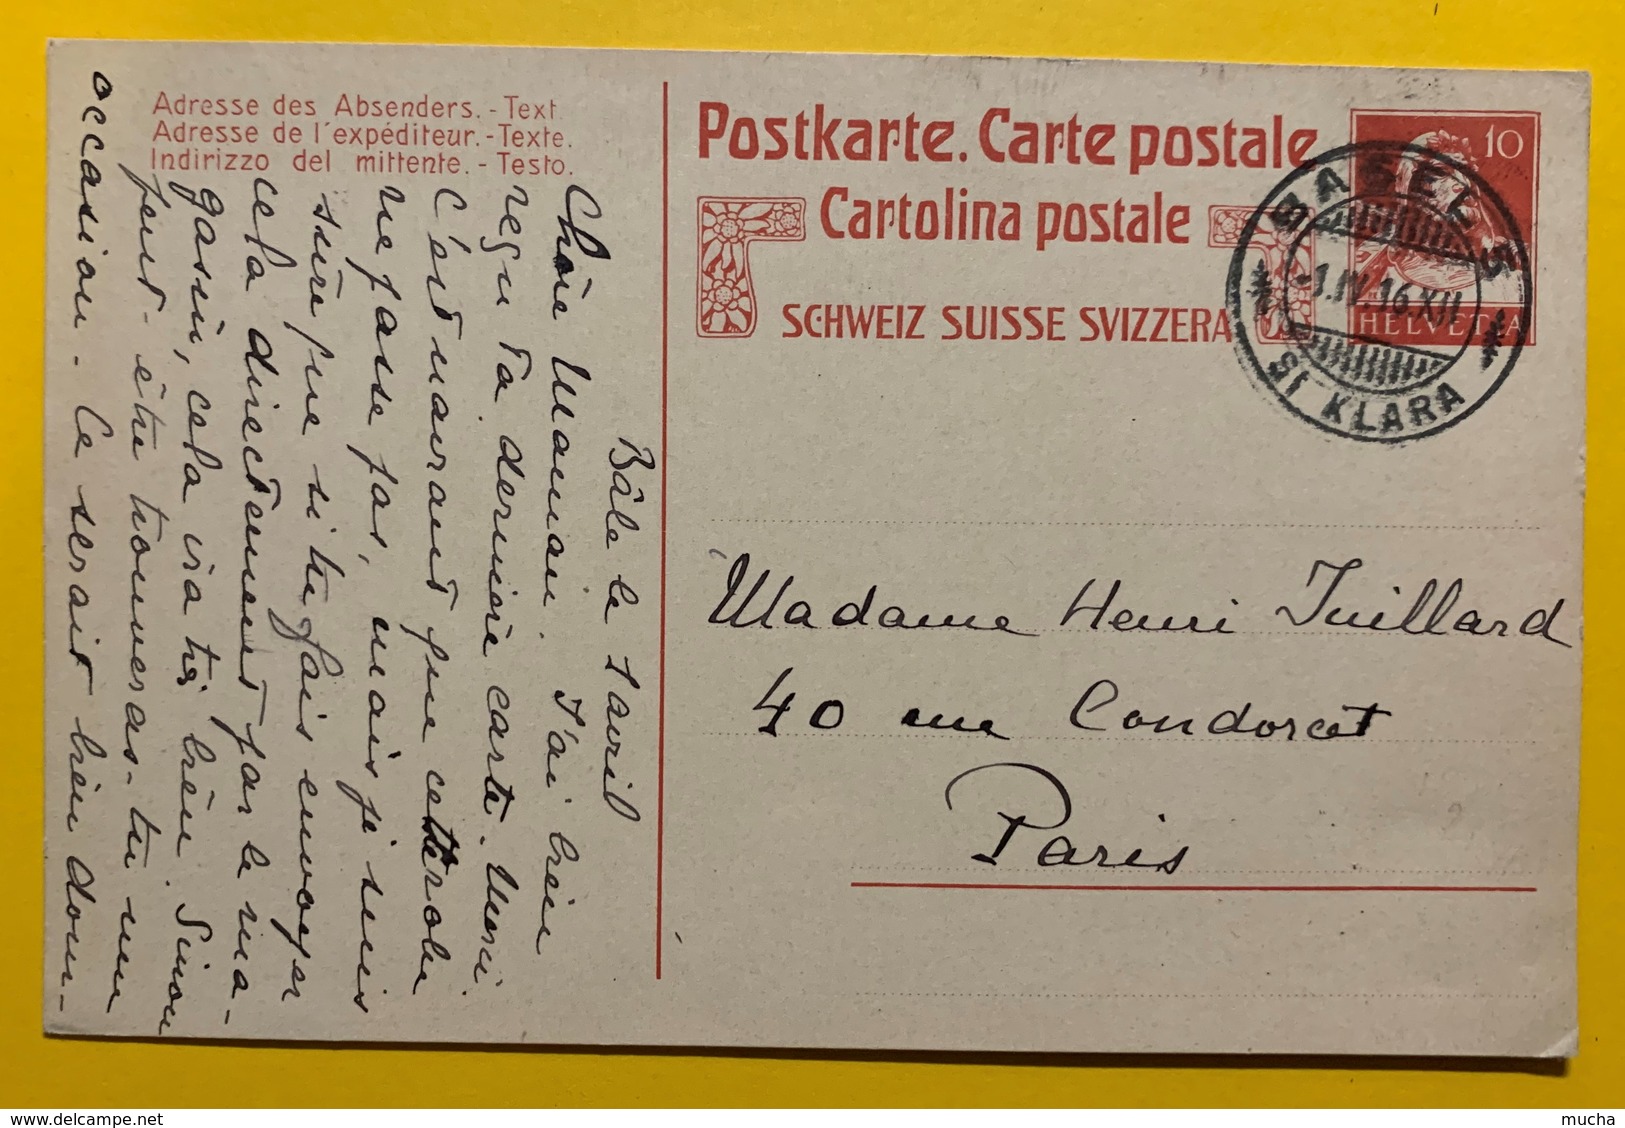 Adresse des Absenders. - Text.
Adresse de l'expéditeur. - Texte.
Indirizzo del mittente. - Testo.
Postkarte. Carte postale
Cartolina postale
SCHWEIZ SUISSE SVIZZERA
10
HELVETIA
BASEL 5
-1.IV.16.XII
St KLARA
Bâle le 1 avril
Chère Maman. J'ai bien
reçu ta dernière carte. Merci.
C'est navrant que cette robe
ne passe pas, mais je suis
sûre que si tu fais envoyer
cela directement par le ma-
gasin, cela ira très bien. Sinon
peut-être trouveras-tu une
occasion. Ce serait bien dom-
Madame Henri Juillard
40 rue Condorcet
Paris
delcampe.net
mucha